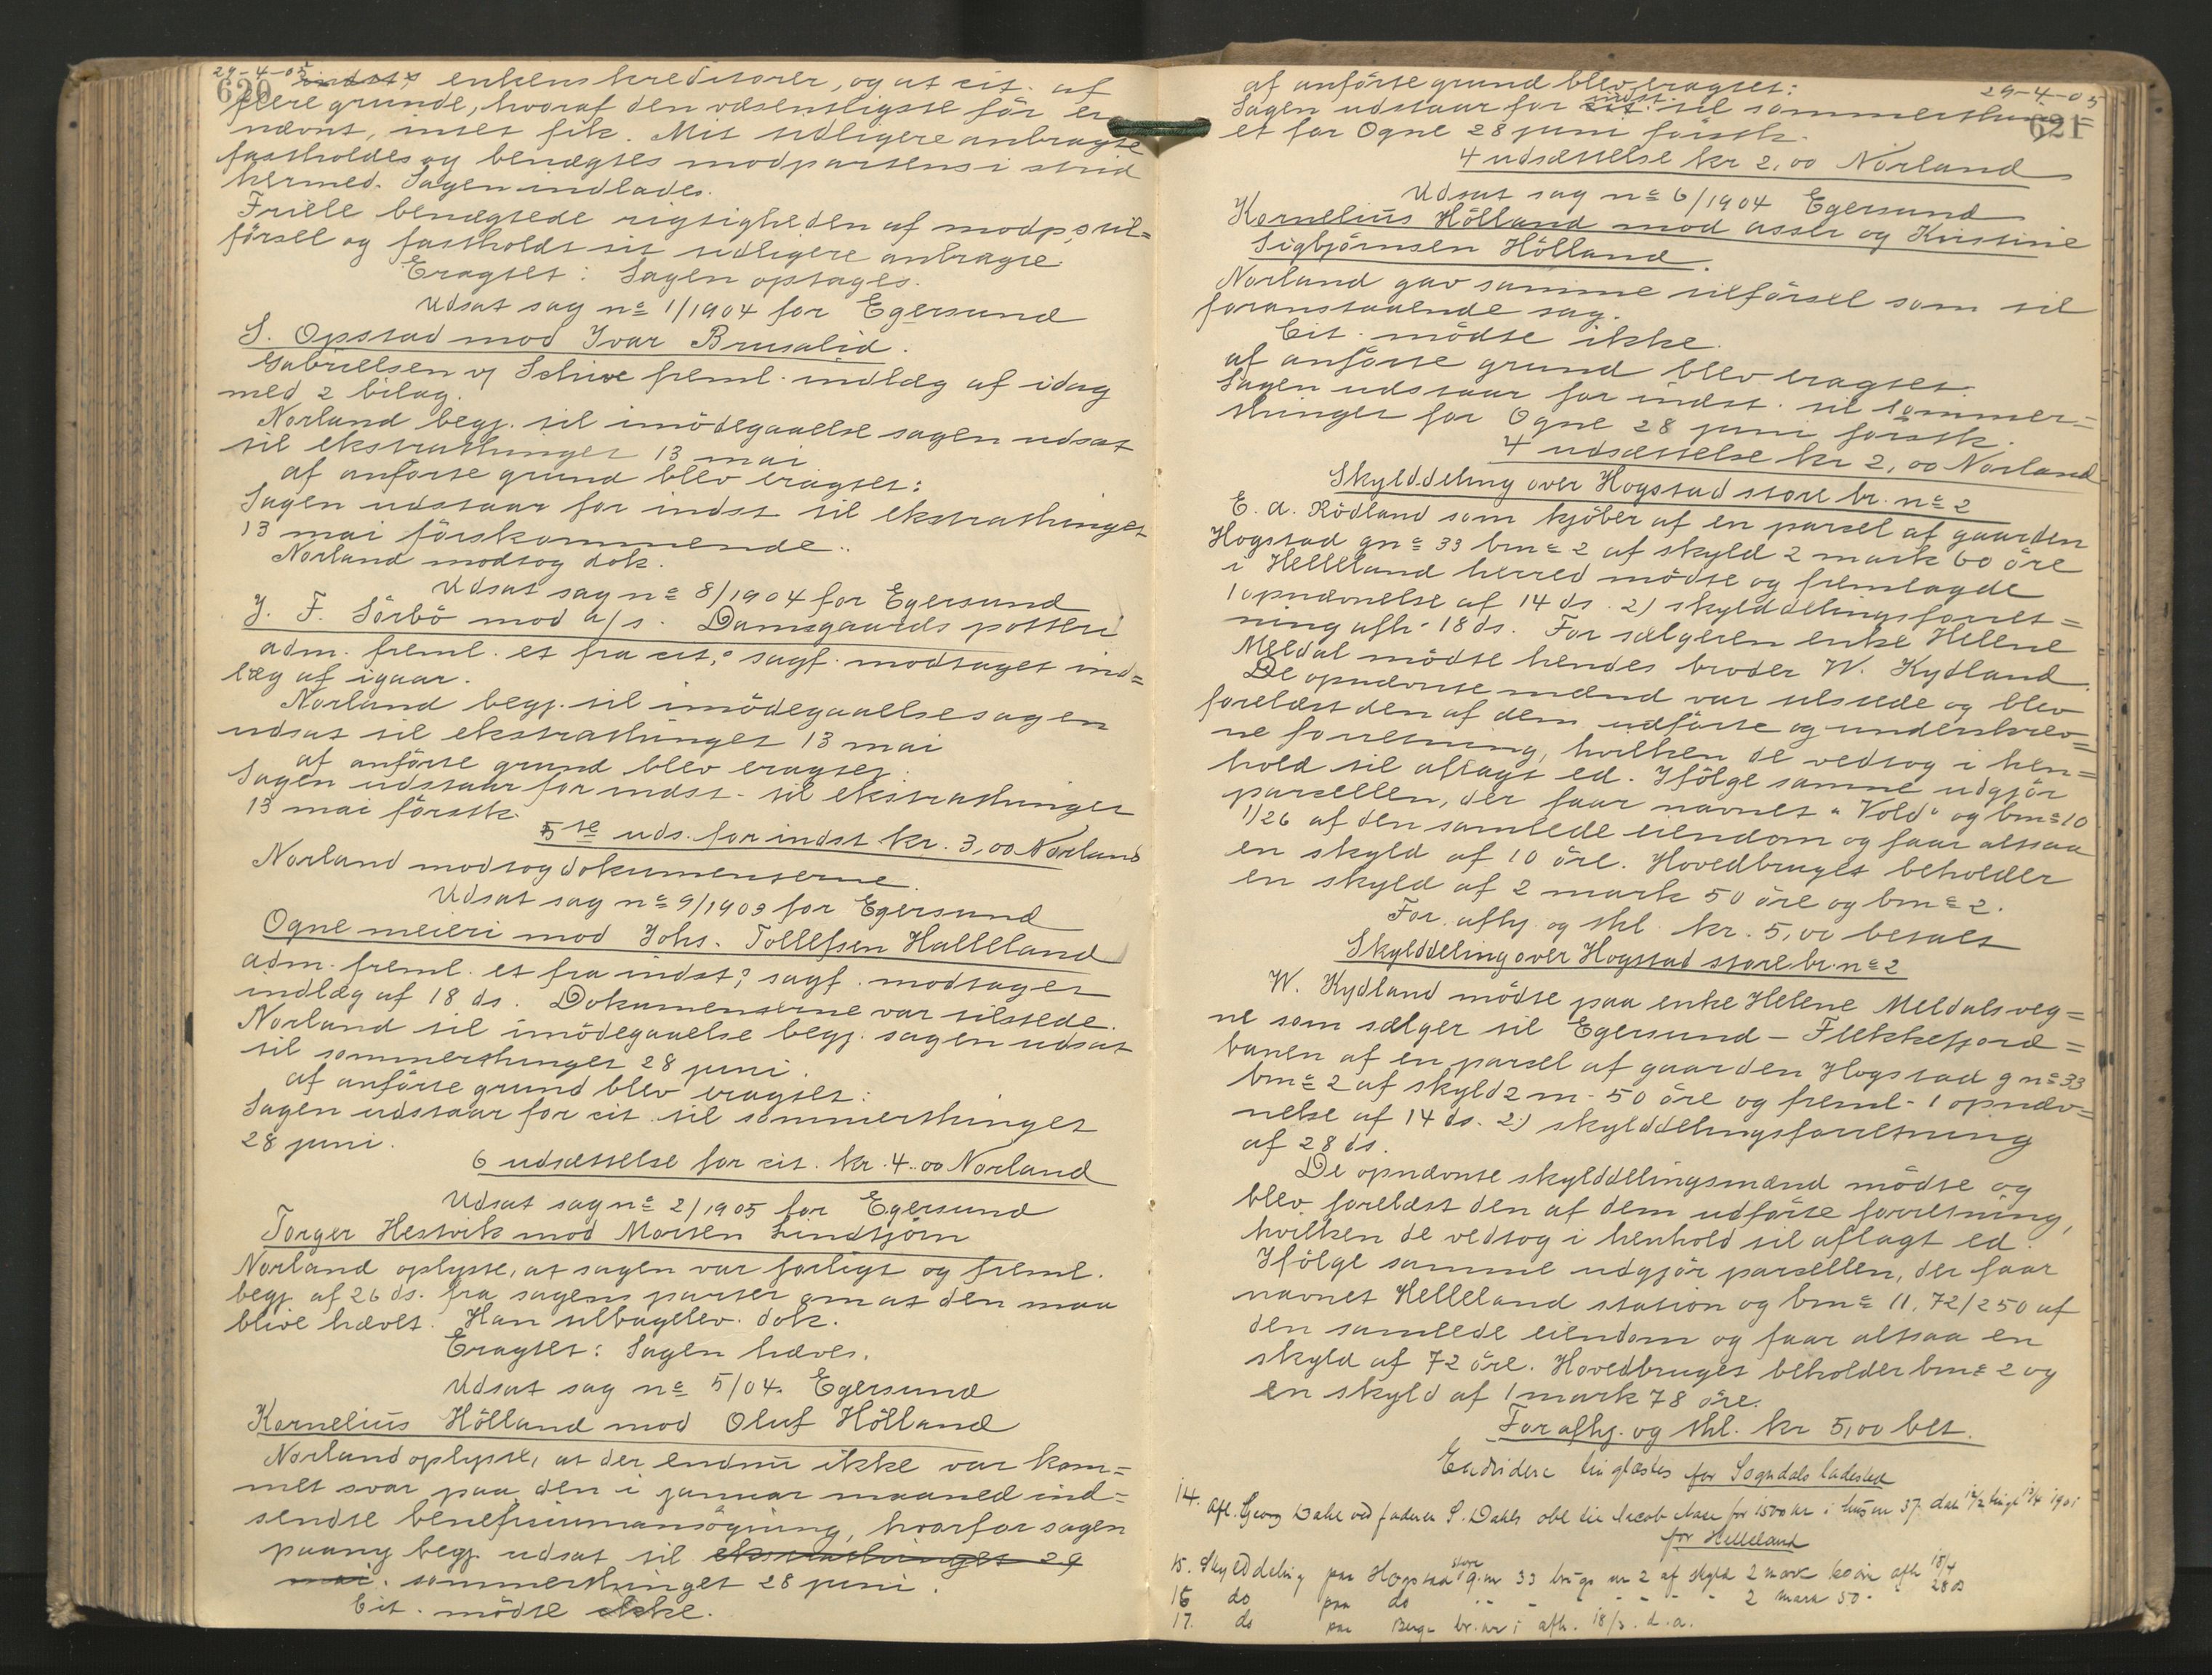 29-4-05
620
indst,s enkens kreditorer, og at cit. af
flere grunde, hvoraf den væsentligste för er
nævnt, intet fik. Mit tidligere anbragte
fastholdes og benægtes modpartens i strid
hermed. Sagen indlades.
Friele benægtede rigtigheden af modp,s til=
försel og fastholdt sit tidligere anbragte.
Eragtet: Sagen optages.
Udsat sag no 1/1904 for Egersund
S. Opstad mod Ivar Brusalid.
Gabrielsen v/ Schive freml. indlæg af idag
med 2 bilag.
Norland begj. til imödegaaelse sagen udsat
til ekstrathinget 13 mai
af anförte grund blev eragtet:
Sagen udstaar for indst til ekstrathinget
13 mai förstkommende..
Norland modtog dok.
Udsat sag no 8/1904 for Egersund
J. F. Sörbö mod a/s. Damsgaards potteri
adm. freml. et fra cit,s sagf. modtaget ind=
læg af igaar.
Norland begj. til imödegaaelse sagen
udsat til ekstrathinget 13 mai
af anförte grund blev eragtet:
Sagen udstaar for indst. til ekstrathinget
13 mai förstk.
5te uds. for indst kr. 3,00 Norland
Norland modtog dokumenterne.
Udsat sag no 9/1903 for Egersund
Ogne meieri mod Johs. Tollefsen Halleland
adm. freml. et fra indst,s sagf. modtaget
indlæg af 18 ds. Dokumenterne var tilstede.
Norland til imödegaaelse begj. sagen udsat
til sommerthinget 28 juni.
af anförte grund blev eragtet:
Sagen udstaar for cit. til sommerthinget
28 juni.
6 udsættelse for cit. kr. 4.00 Norland
Udsat sag no 2/1905 for Egersund
Torger Hestvik mod Morten Lindtjörn
Norland oplyste, at sagen var forligt og freml.
begj. af 26 ds. fra sagens parter om at den maa
blive hævet. Han tilbagelev. dok.
Eragtet: Sagen hæves.
Udsat sag no 5/04. Egersund
Kornelius Hölland mod Oluf Hölland
Norland oplyste, at der endnu ikke var kom=
met svar paa den i januar maaned ind=
sendte beneficiumansögning, hvorfor sagen
paany begj. udsat til ekstrathinget 29
mai. sommerthinget 28 juni.
Cit. mödte ikke.
29-4-05
621
af anförte grund blev eragtet:
Sagen udstaar for cit. indst. til sommerthing=
et for Ogne 28 juni förstk.
4 udsættelse kr 2,00 Norland
Udsat sag no 6/1904 Egersund
Kornelius Hölland mod assk og Kristine
Sigbjörnsen Hölland.
Norland gav samme tilförsel som til
foranstaaende sag.
Cit. mödte ikke.
af anförte grund blev eragtet:
Sagen udstaar for indst. til sommer=
thinget for Ogne 28 juni förstk.
4 udsættelse kr 2,00 Norland
Skylddeling over Hogstad store br. no 2
E. A. Rödland som kjöber af en parsel af gaarden
Hogstad gno 33 bno 2 af skyld 2 mark 60 öre
i Helleland herred mödte og fremlagde
1 opnævnelse af 14 ds. 2) skylddelingsforret=
ning afh. 18 ds. For sælgeren enke Helene
Meldal mödte hendes broder W. Kydland.
De opnævnte mænd var tilstede og blev
forelæst den af dem udförte og underskrev=
ne forretning, hvilken de vedtog i hen=
hold til aflagt ed. Ifölge samme udgjör
parcellen, der faar navnet "Vold" og bno 10
1/26 af den samlede eiendom og faar altsaa
en skyld af 10 öre. Hovedbruget beholder
en skyld af 2 mark 50 öre og bno 2.
For afhj. og thl. kr. 5,00 betalt
Skylddeling over Hogstad store br. no 2
W. Kydland mödte paa enke Helene Meldals veg=
ne som sælger til Egersund - Flekkefjord=
banen af en parsel af gaarden Hogstad gno 33
bno 2 af skyld 2 m. 50 öre og freml. 1 opnæv=
nelse af 14 ds. 2) skylddelingsforretning
af 28 ds.
De opnævnte skylddelingsmænd mödte og
blev forelæst den af dem udförte forretning,
hvilken de vedtog i henhold til aflagt ed.
Ifölge samme udgjör parsellen, der faar
navnet Helleland station og bno 11, 72/250 af
den samlede eiendom og faar altsaa en
skyld af 72 öre. Hovedbruget beholder bno 2 og
en skyld af 1 mark 78 öre.
For afhj. og thl. kr 5,00 bet.
Endvidere tinglæstes for Sogndals ladested
14. Afl. Georg Dahl ved faderen S. Dahls obl til Jacob for 1500 kr i husnr 37. dat 12/2 tingl 13/4 1901
for Helleland
15. Skylddeling paa Hogstad store g. nr 33 brugs nr 2 af skyld 2 mark 60 öre afh 18/4
16 do paa do " " " " " 2 mark 50. " 28 ds
17. do paa Berge br. nr 1 afh. 18/3. d. a.